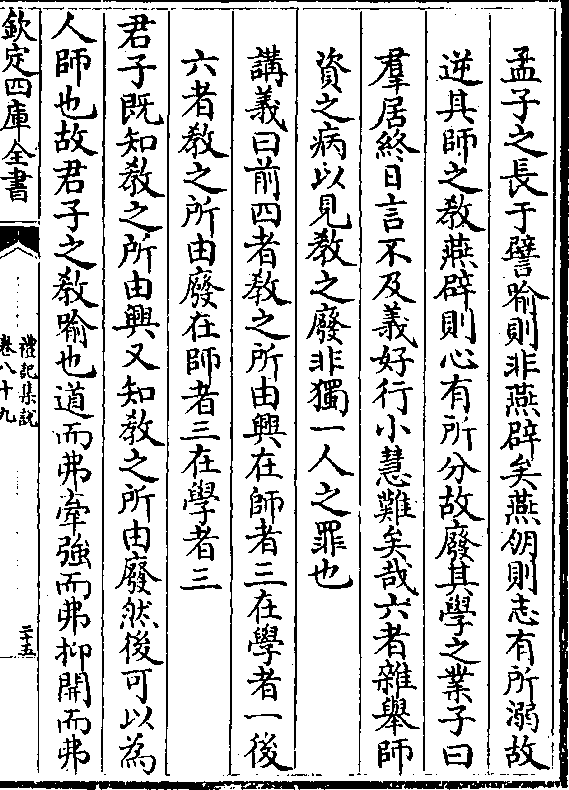 孟子之長于譬喻則非燕辟矣燕朋則志有所溺故
逆其師之敎燕辟則心有所分故廢其學之業子曰
羣居終日言不及義好行小慧難矣哉六者雜舉師
資之病以見敎之廢非獨一人之罪也
講義曰前四者敎之所由興在師者三在學者一後
六者敎之所由廢在師者三在學者三
君子旣知敎之所由興又知敎之所由廢然後可以為
人師也故君子之敎喻也道而弗牽強而弗抑開而弗
欽定四庫全書
禮記集説
卷八十九
二十五